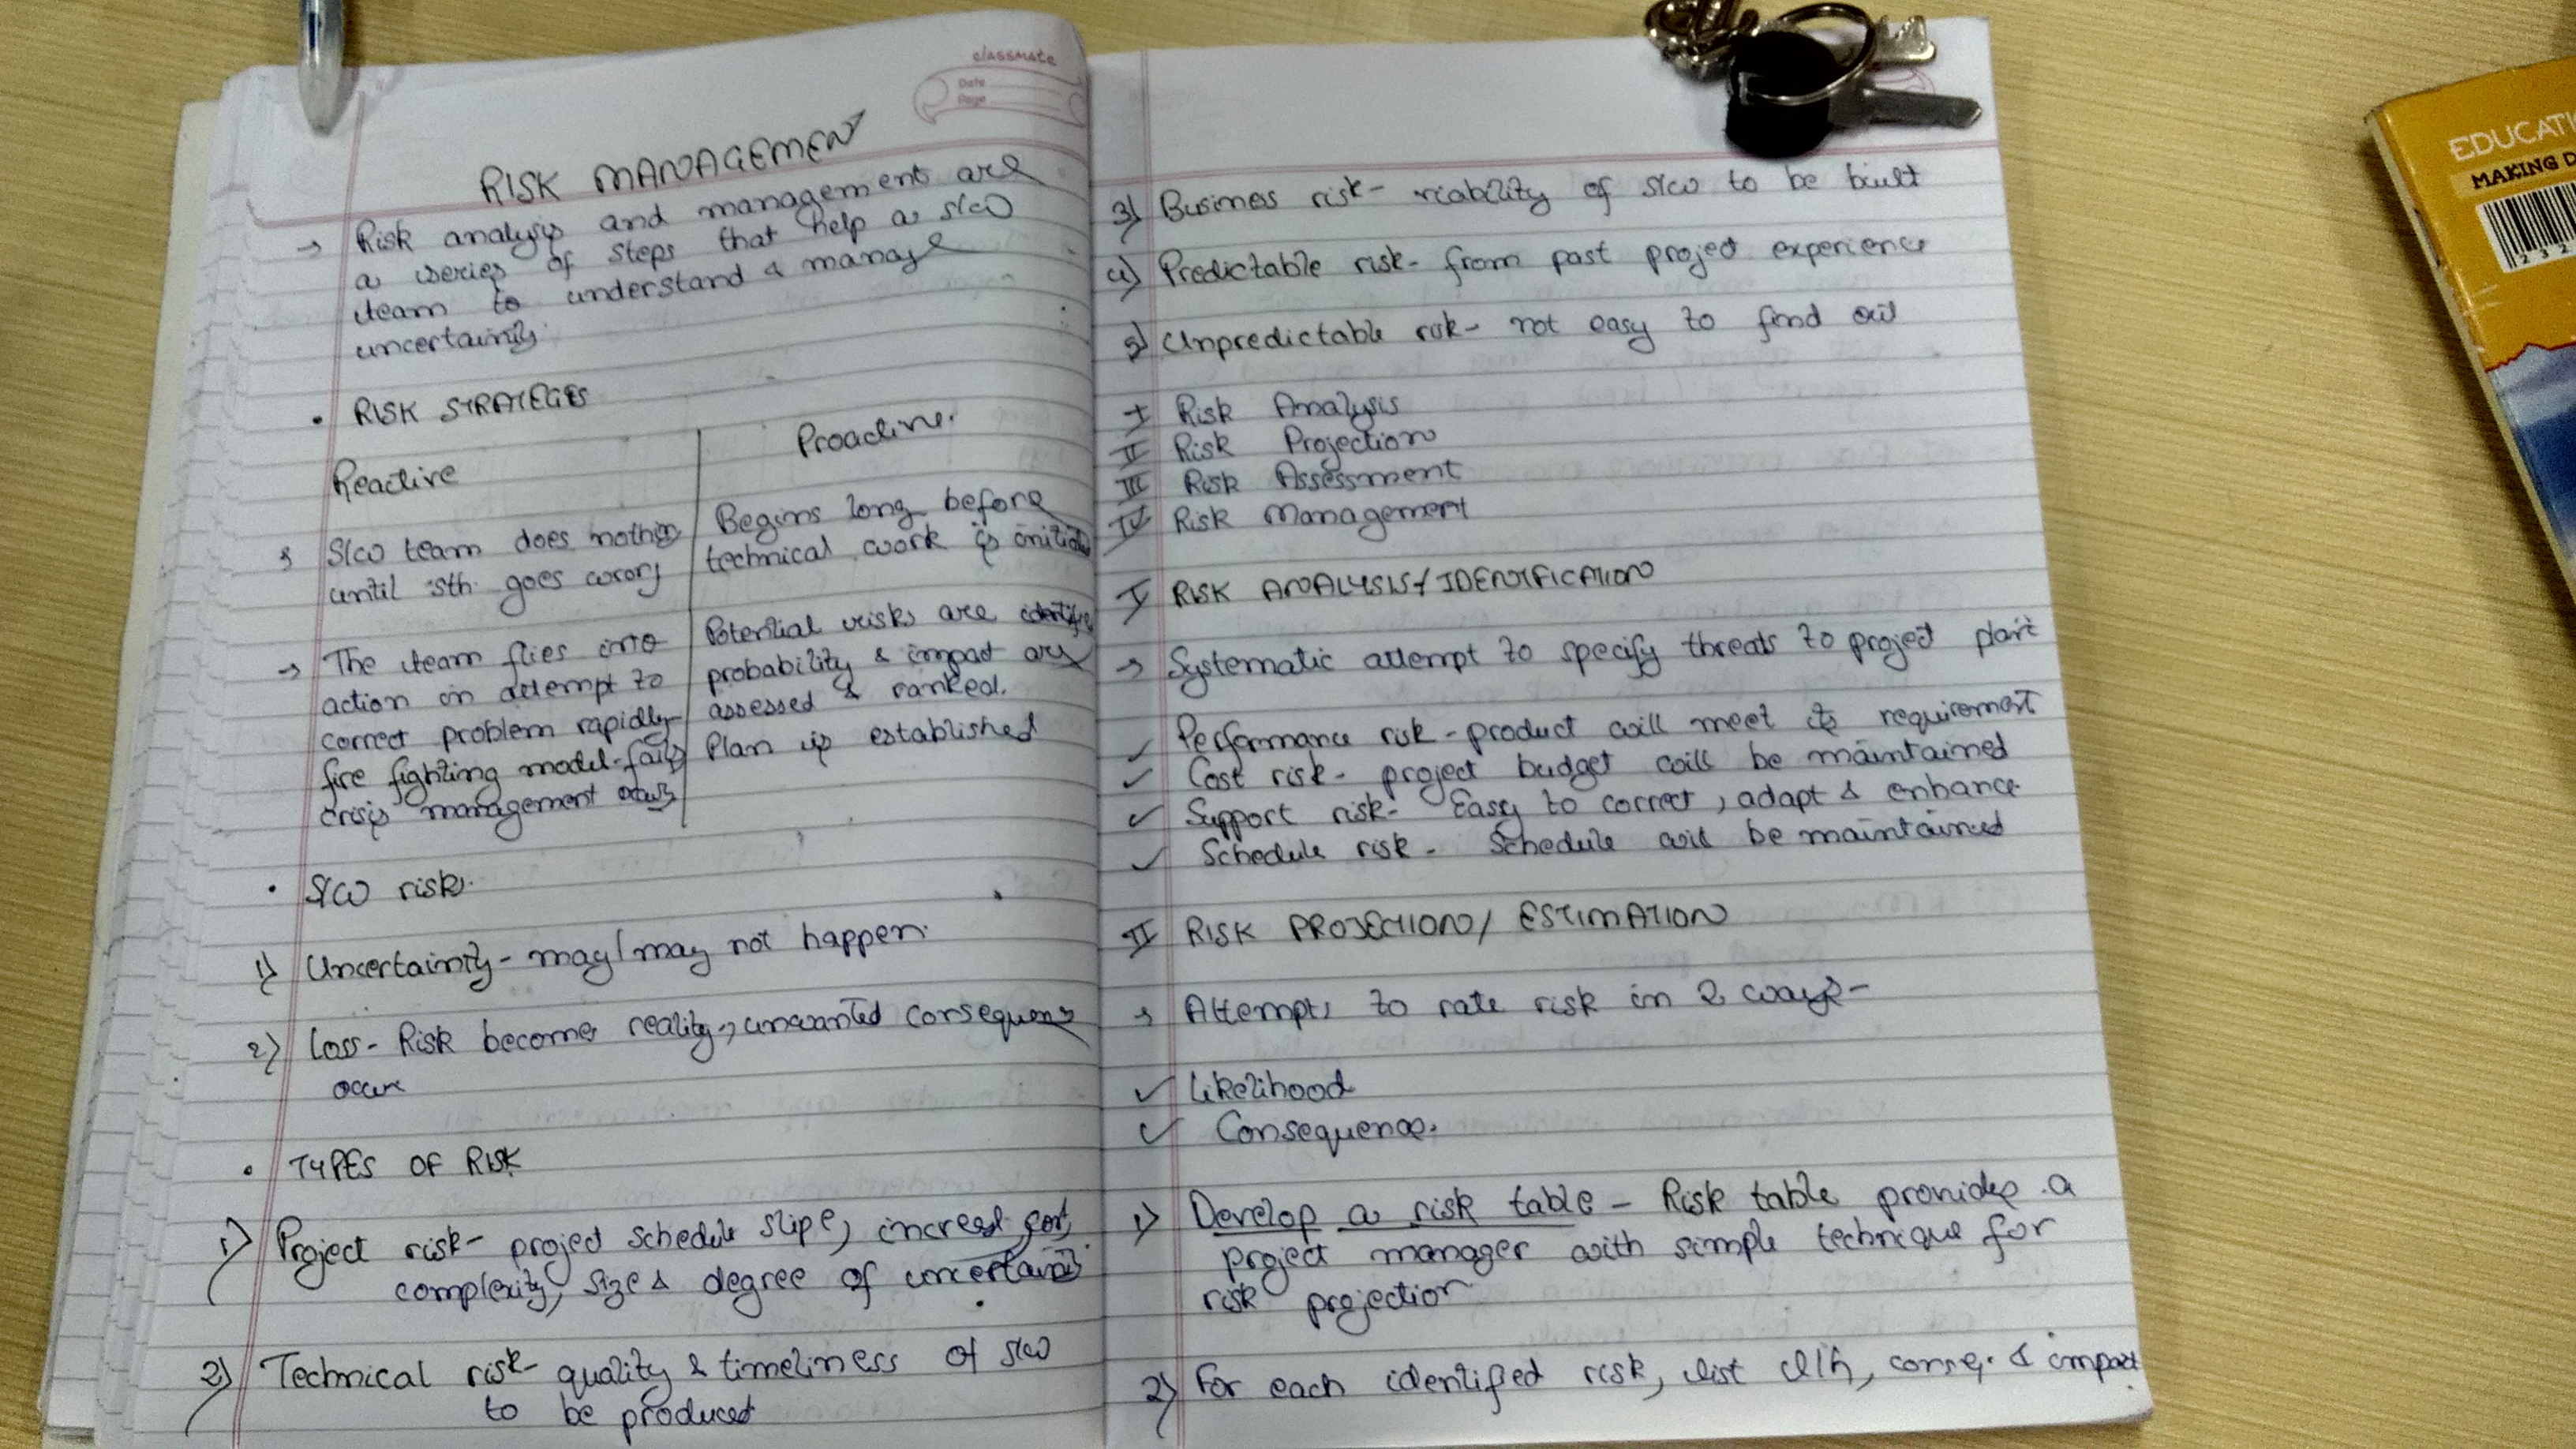 classmate
Date
Page
RISK MANAGEMENT
→ Risk analysis and management are
a series of steps that help a s/w
team to understand & manage
uncertainity.
• RISK STRATEGIES
Reactive
→ S/w team does nothing
until sth. goes wrong
→ The team flies into
action in attempt to
correct problem rapidly
fire fighting model-fails
crisis management occurs
Proactive.
Begins long before
technical work is initiated
Potential risks are identified
probability & impact are
assessed & ranked.
Plan is established
• S/W risk.
1) Uncertainity - may/may not happen.
2) Loss - Risk becomes reality, unwanted consequences
occur
• TYPES OF RISK
1) Project risk - project schedule slips, increased cost,
complexity, size & degree of uncertainity.
2) Technical risk - quality & timeliness of s/w
to be produced
3) Business risk - viability of s/w to be built
4) Predictable risk - from past project experience
5) Unpredictable risk - not easy to find out
I Risk Analysis
II Risk Projection
III Risk Assessment
IV Risk Management
I RISK ANALYSIS / IDENTIFICATION
→ Systematic attempt to specify threats to project plan
✓ Performance risk - product will meet its requirement
✓ Cost risk - project budget will be maintained
✓ Support risk - Easy to correct, adapt & enhance
✓ Schedule risk - Schedule will be maintained
II RISK PROJECTION / ESTIMATION
→ Attempts to rate risk in 2 ways -
✓ Likelihood
✓ Consequence.
1) Develop a risk table - Risk table provides a
project manager with simple technique for
risk projection
2) For each identified risk, list l/h, conseq. & impact
EDUCATI
MAKING D
2 3 2